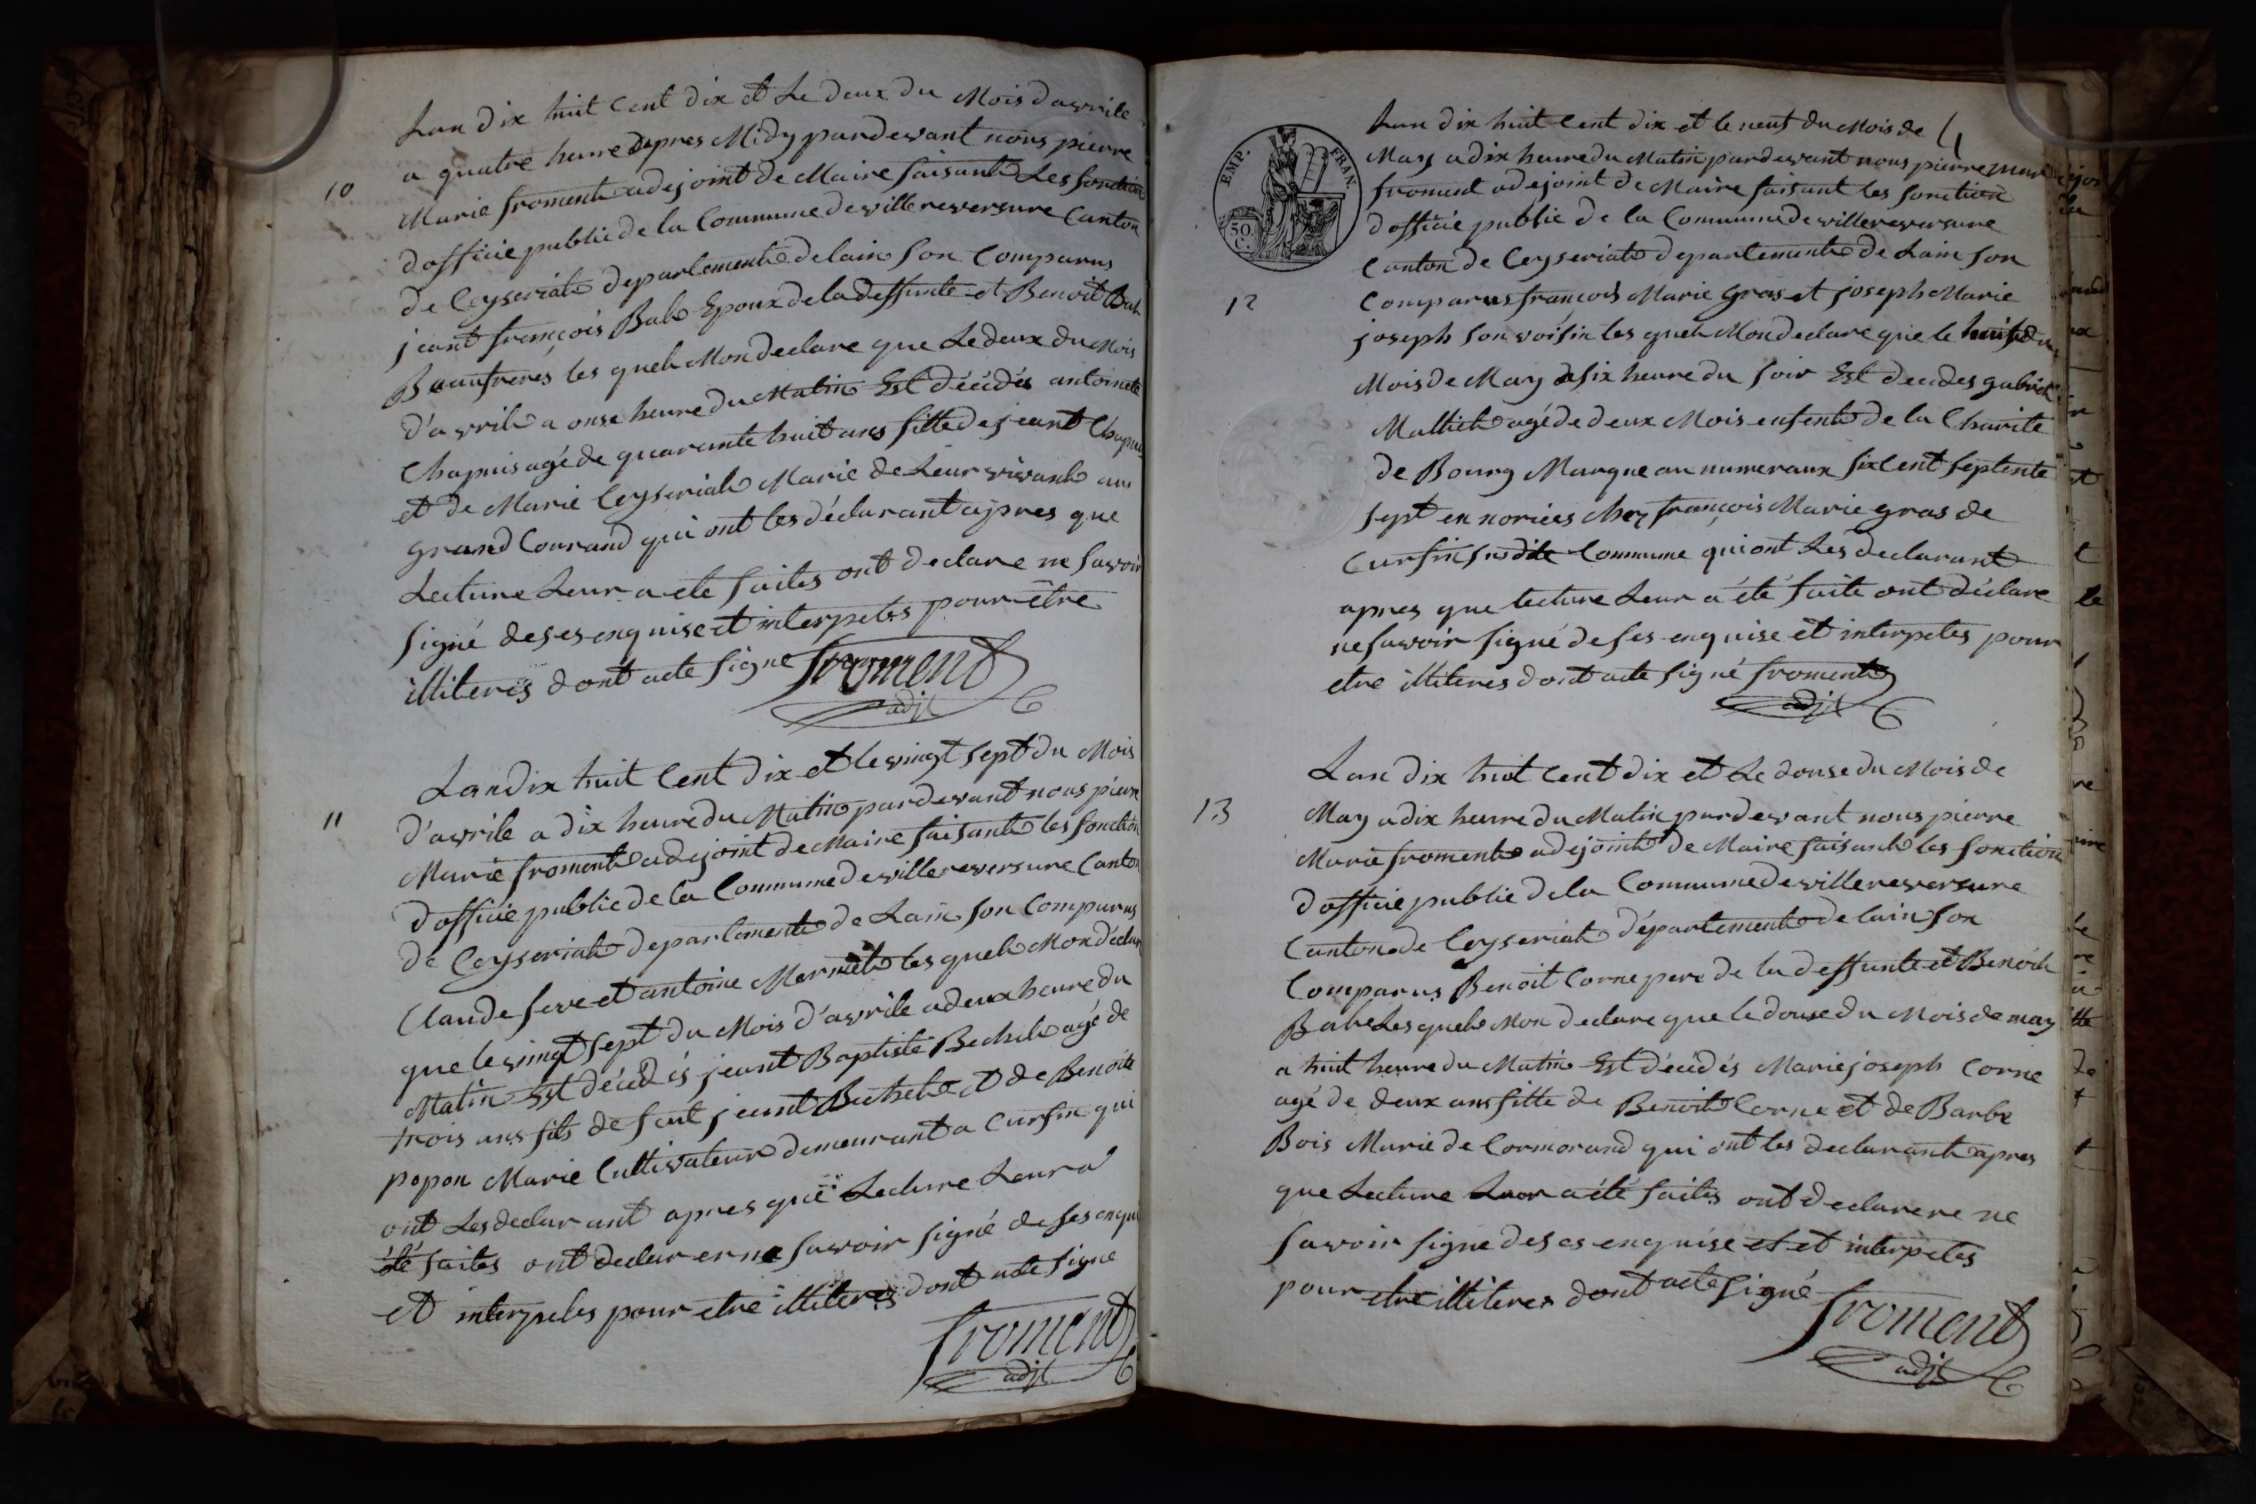 Lan dix huit Cent dix et Le deux du Mois davrile
a quatre heure depres Midy pardevant nous pierre
10
Marie froment adejoint de Maire faisant Les fonction
dofficie public de la Commune de villereversure Canton
de Ceyseriat departement delain son Comparus
jeant françois Bab Epoux de la deffunte et Benoit Bab
Beaufreres les quels Mon declare que Le deux du Mois
d'avrile a onse heure du Matin Est décédés antoinette
Chapuis agé de quarante huit ans fille de jeant Chapuis
et de Marie Ceyseriat Marie de Leur vivant au
grand Courand qui ont les déclarant apres que
Lecture Leur a ete faites ont declare ne savoir
signé de ses enquise et interpetes pour être
illiteres dont acte signe froment
adjt
Lan dix huit Cent dix et le vingt sept du Mois
11
d'avrile a dix heure du Matin pardevant nous pierre
Marie froment adejoint de Maire faisant les fonction
dofficie public de la Commune de villereversure Canton
de Ceyseriat departement de Lain son Comparus
Claude feve et antoine Mermet les quels Mon déclare
que le vingt sept du Mois d'avrile a deux heure du
Matin Est décédés jeant Baptiste Bechet agé de
trois ans fils de feut jeant Bechet et de Benoite
popon Marie Cultivateur demeurant a Cursin qui
ont Les declarant apres que Lecture Leur a
été faites ont declarer ne savoir signé de ses enqui
et interpetes pour etre illiteres dont acte signe
froment
adjt
4
EMP. FRAN.
50. C.
Lan dix huit Cent dix et le neuf du Mois de
May a dix heure du Matin pardevant nous pierre Marie
froment adejoint de Maire faisant les fonction
dofficie public de la Commune de villereversure
Canton de Ceyseriat departement de Lain son
12
Comparus françois Marie Gras et joseph Marie
joseph son voisin les quels Mon declare que le huit du
Mois de May a six heure du soir Est decides gabriel
Mallich agé de deux Mois enfent de la Charité
de Bourg Marque au numeraux six Cent septente
sept en norices chez françois Marie gras de
Cursin sudite Commune qui ont Les declarant
apres que lecture Leur a été faite ont déclare
ne savoir signé de ses enquise et interpetes pour
etre illiteres dont acte signé froment
adjt
Lan dix huit Cent dix et Le douse du Mois de
13
May a dix heure du Matin pardevant nous pierre
Marie froment adejoint de Maire faisant les fonction
dofficie public de la Commune de villereversure
Canton de Ceyseriat département de lain son
Comparus Benoit Corne pere de la deffunte et Benoit
Babe Les quels Mon declare que le douse du Mois de may
a huit heure du Matin Est décidés Marie joseph Corne
agé de deux ans fille de Benoit Corne et de Barbe
Bois Marie de Cormorand qui ont les declarant apres
que Lecture Leur a été faites ont declarere ne
savoir signe de ses enquise et et interpetes
pour etre illiteres dont acte signé froment
adjt